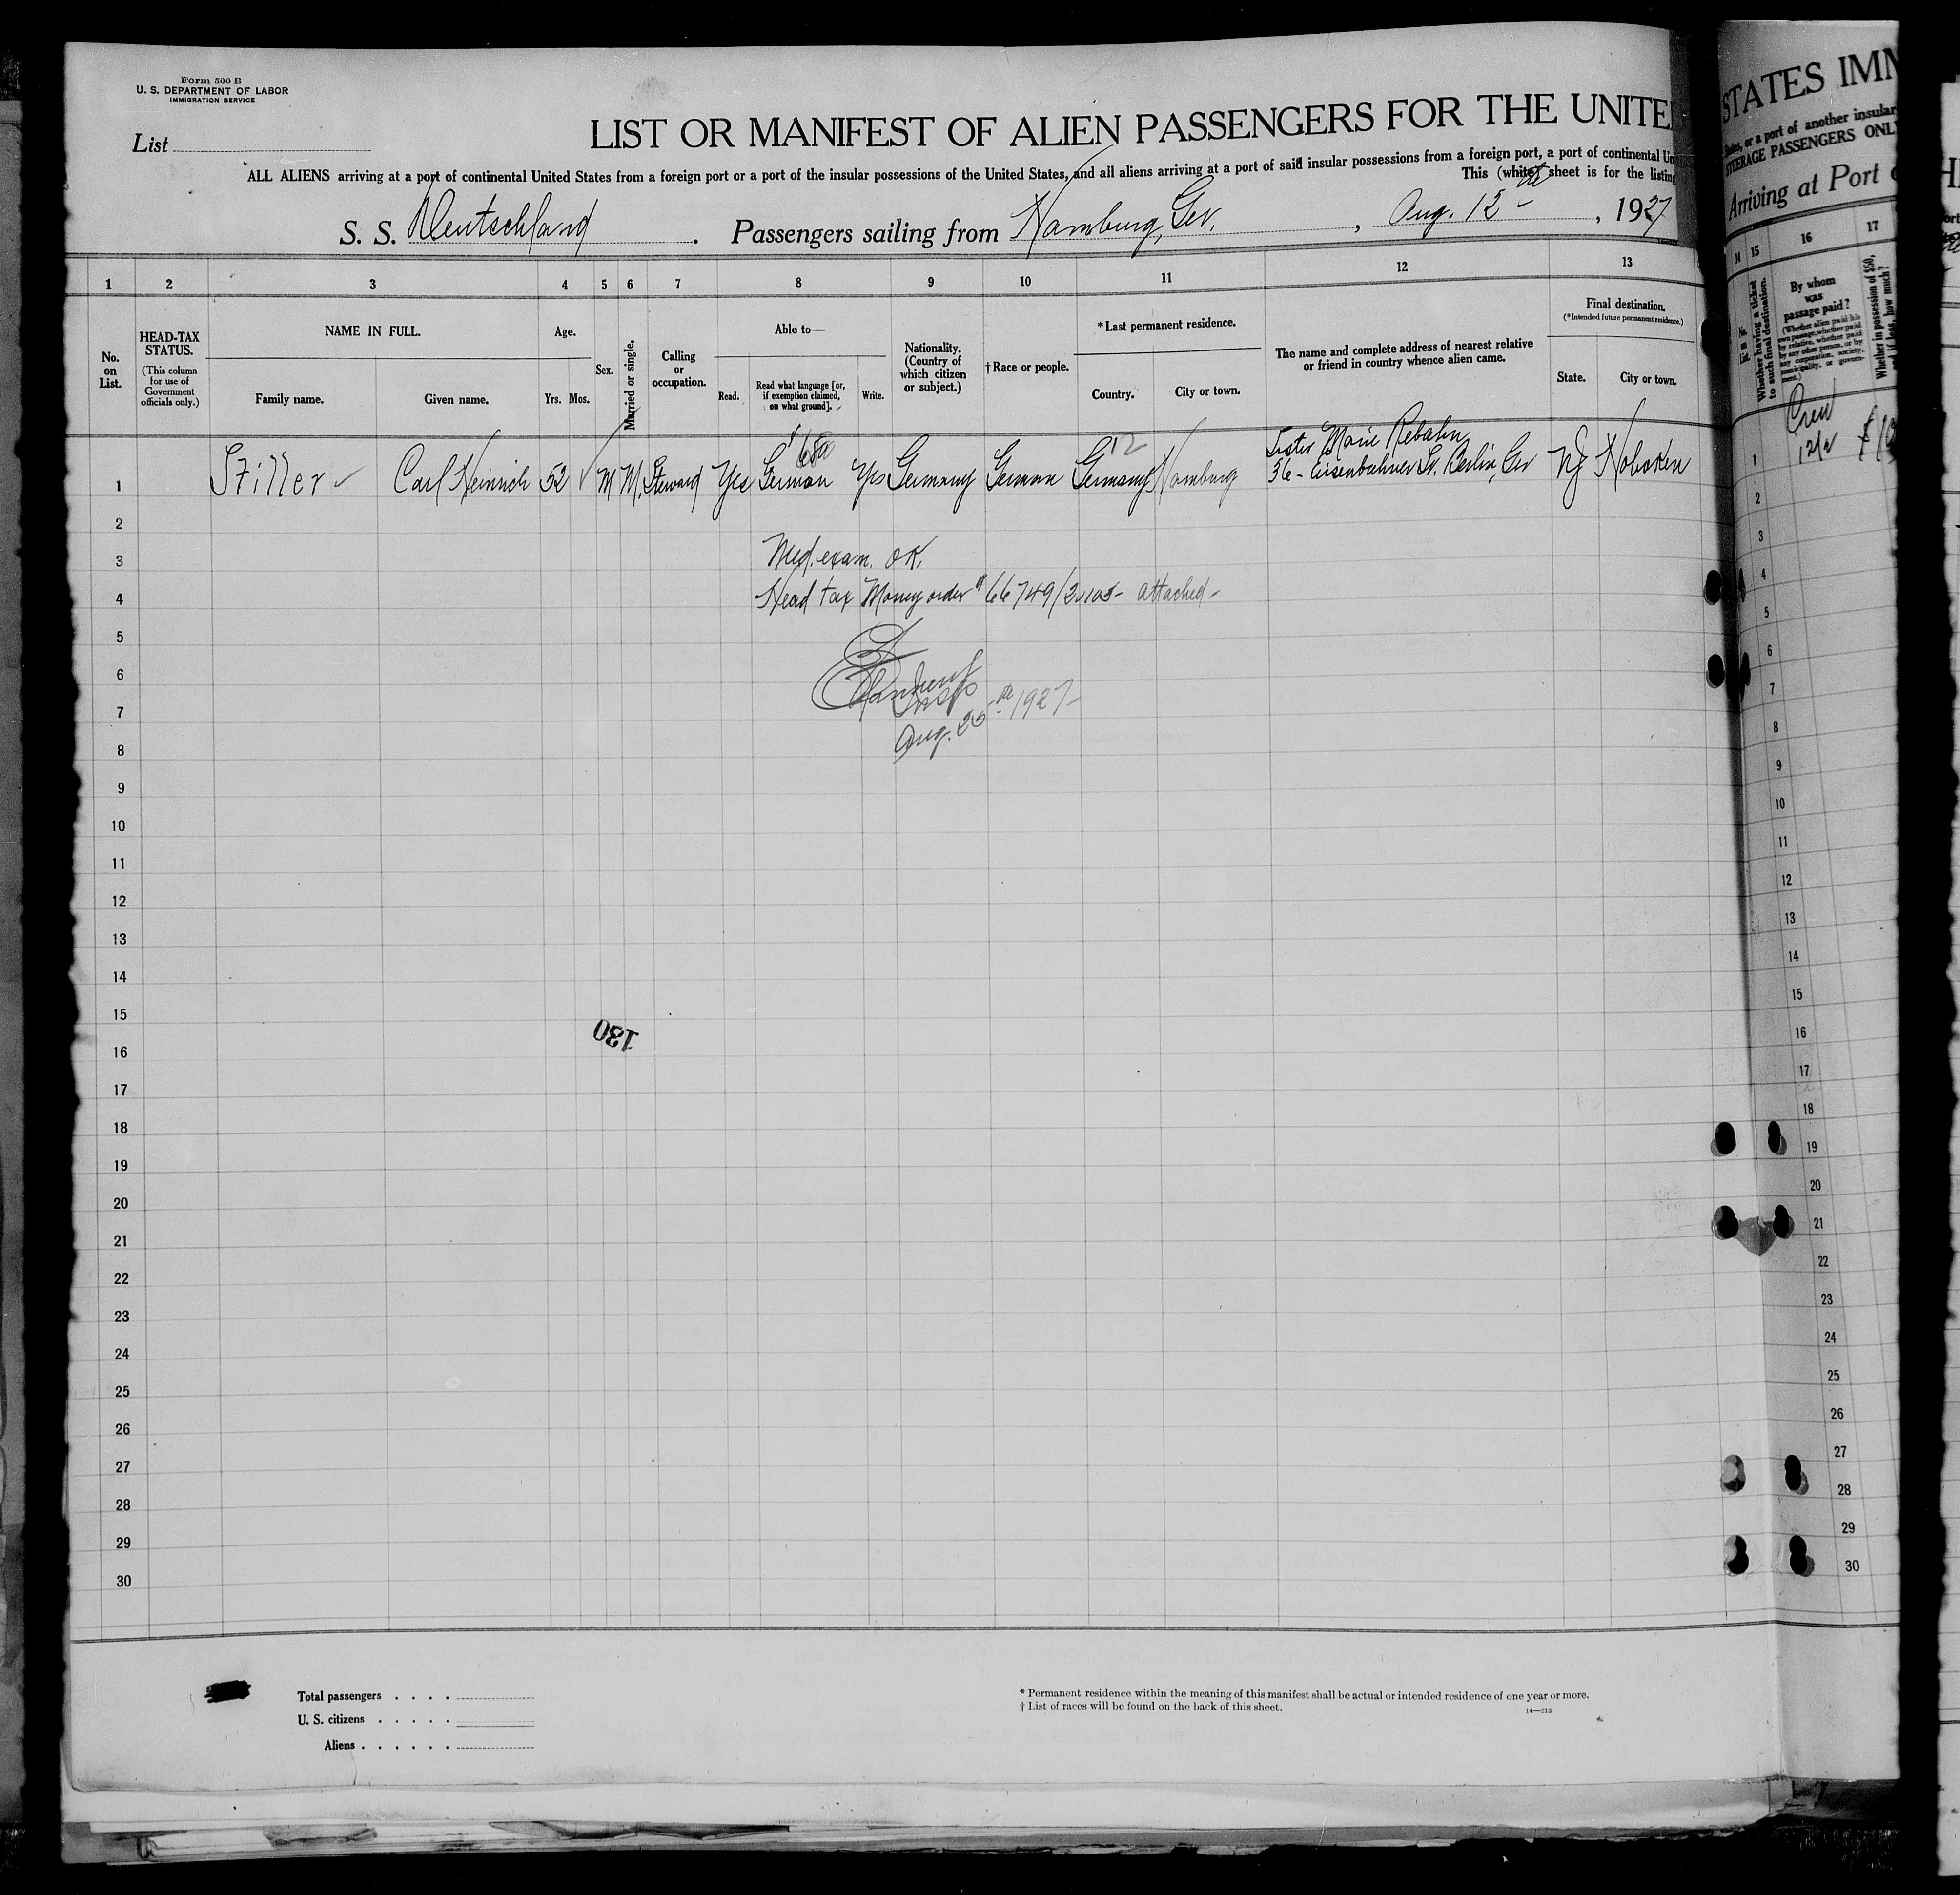 Form 500 B
U. S. DEPARTMENT OF LABOR
IMMIGRATION SERVICE
List
LIST OR MANIFEST OF ALIEN PASSENGERS FOR THE UNITE
ALL ALIENS arriving at a port of continental United States from a foreign port or a port of the insular possessions of the United States, and all aliens arriving at a port of said insular possessions from a foreign port, a port of continental Un
This (white) sheet is for the listing
S. S. Deutschland. Passengers sailing from Hamburg, Ger., Aug. 12th, 1927
1 2 3 4 5 6 7 8 9 10 11 12 13
No. on List.
HEAD-TAX STATUS.
(This column for use of Government officials only.)
NAME IN FULL.
Family name. Given name.
Age.
Yrs. Mos.
Sex.
Married or single.
Calling or occupation.
Able to—
Read. Read what language [or, if exemption claimed, on what ground]. Write.
Nationality. (Country of which citizen or subject.)
†Race or people.
*Last permanent residence.
Country. City or town.
The name and complete address of nearest relative or friend in country whence alien came.
Final destination.
(*Intended future permanent residence.)
State. City or town.
1 Stiller Carl Heinrich 52 M M. Steward Yes German Yes Germany German Germany Hamburg Sister Marie Rebahn
36 - Eisenbahner St. Berlin, Ger NJ Hoboken
2
3 Med. exam. OK.
4 Head tax Money order # attached -
5
6
7 Aug. 1927
8
9
10
11
12
13
14
15
130
16
17
18
19
20
21
22
23
24
25
26
27
28
29
30
Total passengers
U. S. citizens
Aliens
* Permanent residence within the meaning of this manifest shall be actual or intended residence of one year or more.
† List of races will be found on the back of this sheet.
14—213
STATES IMM
States, or a port of another insular
STEERAGE PASSENGERS ONL
Arriving at Port
14 15 16 17
No. on List.
Whether having a ticket to such final destination.
By whom was passage paid?
Whether in possession of $50, and if less, how much?
Crew
1
2
3
4
5
6
7
8
9
10
11
12
13
14
15
16
17
18
19
20
21
22
23
24
25
26
27
28
29
30